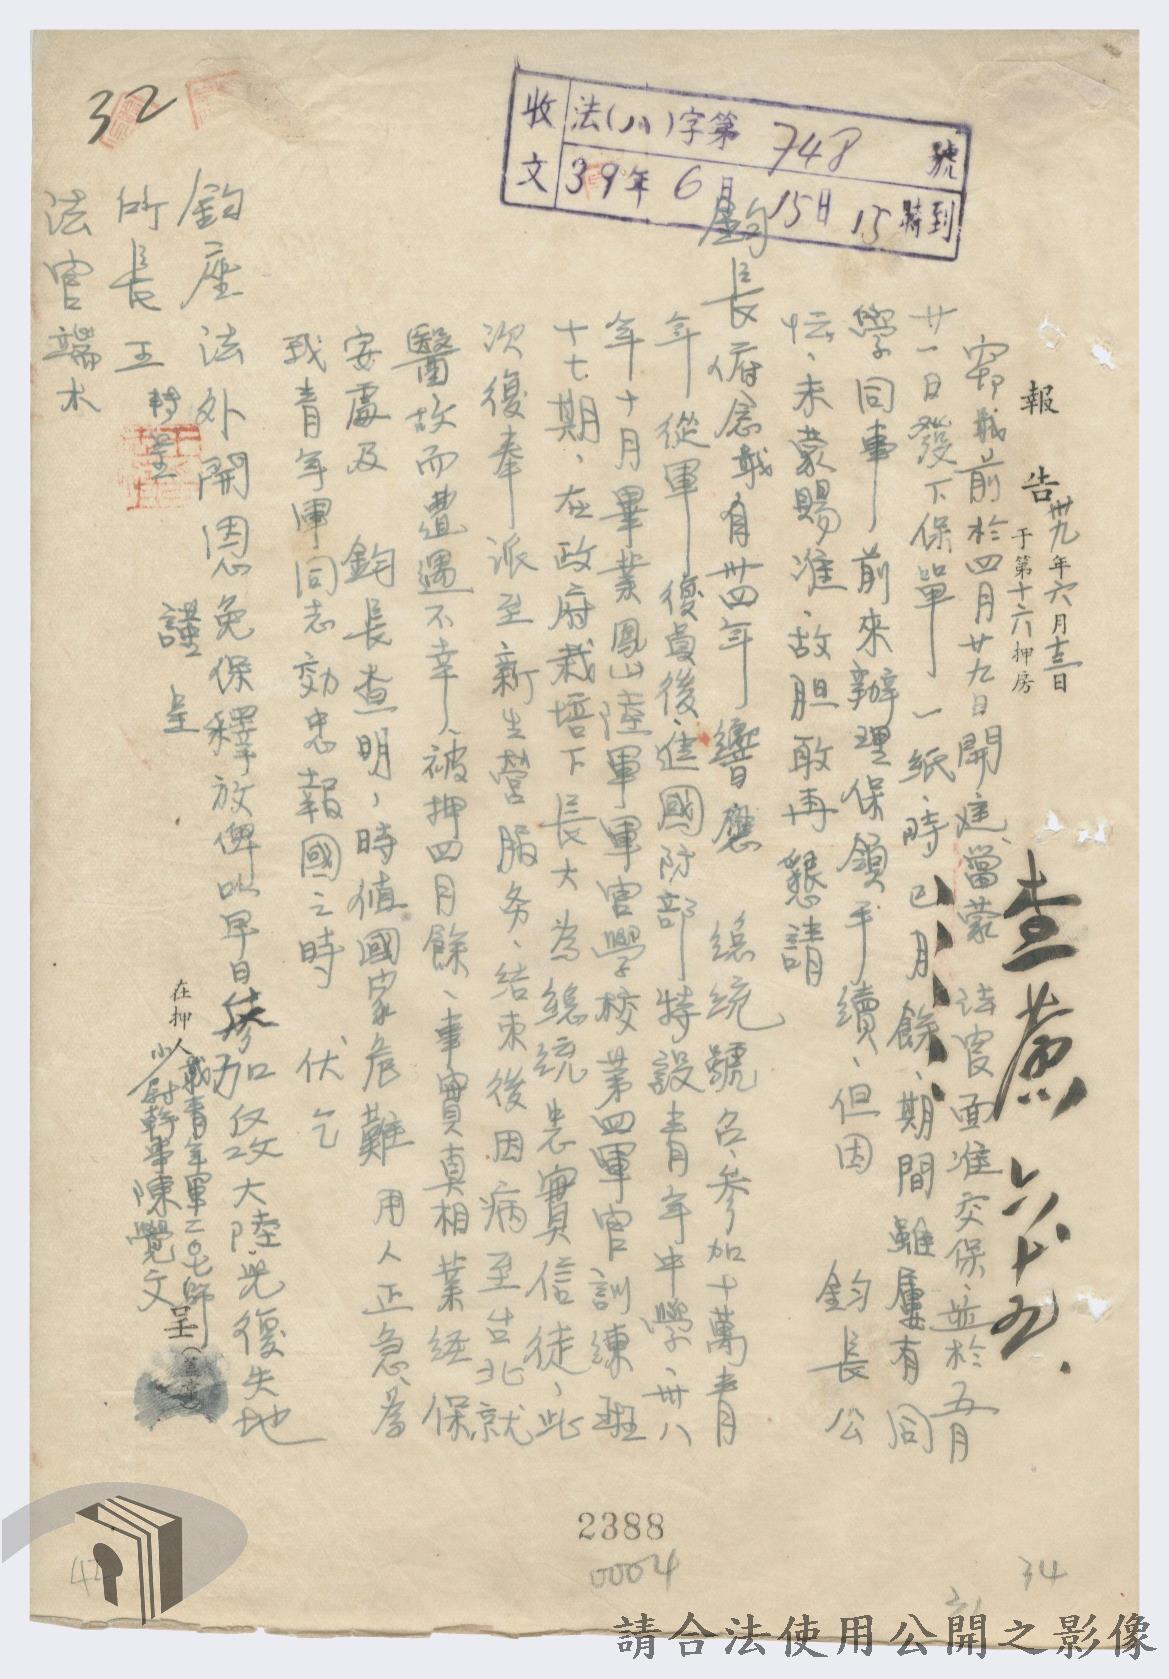 收文 法(八)字第748號
39年6月15日15時到
32
報告 卅九年六月十三日
于第十六押房
查蔗 六十五
竊職前於四月廿九日開庭、當蒙 法官面准交保、並於五月
廿一日發下保單一紙、時已月餘、期間雖屢有同
學同事前來辦理保領手續、但因 鈞長公
忙、未蒙賜准、故胆敢再懇請
鈞長俯念職有卅四年響應 總統號召、參加十萬青
年從軍、復員後、進國防部特設青年中學、卅八
年十月畢業鳳山陸軍軍官學校第四軍官訓練班
十七期、在政府栽培下長大為總統忠實信徒、此
次復奉派至新生營服务、結束後因病至台北就
醫故而遭遇不幸、被押四月餘、事實真相業经保
安處及 鈞長查明，時值國家危難 用人正急、為
我青年軍同志効忠報國之時 伏乞
鈞座法外開恩免保釋放俾以早日參加反攻大陸光復失地
謹呈
所長王 轉呈
法官端木
在押人 職青年軍二〇七師
少尉幹事陳覺文 呈
2388
0004
34
請合法使用公開之影像